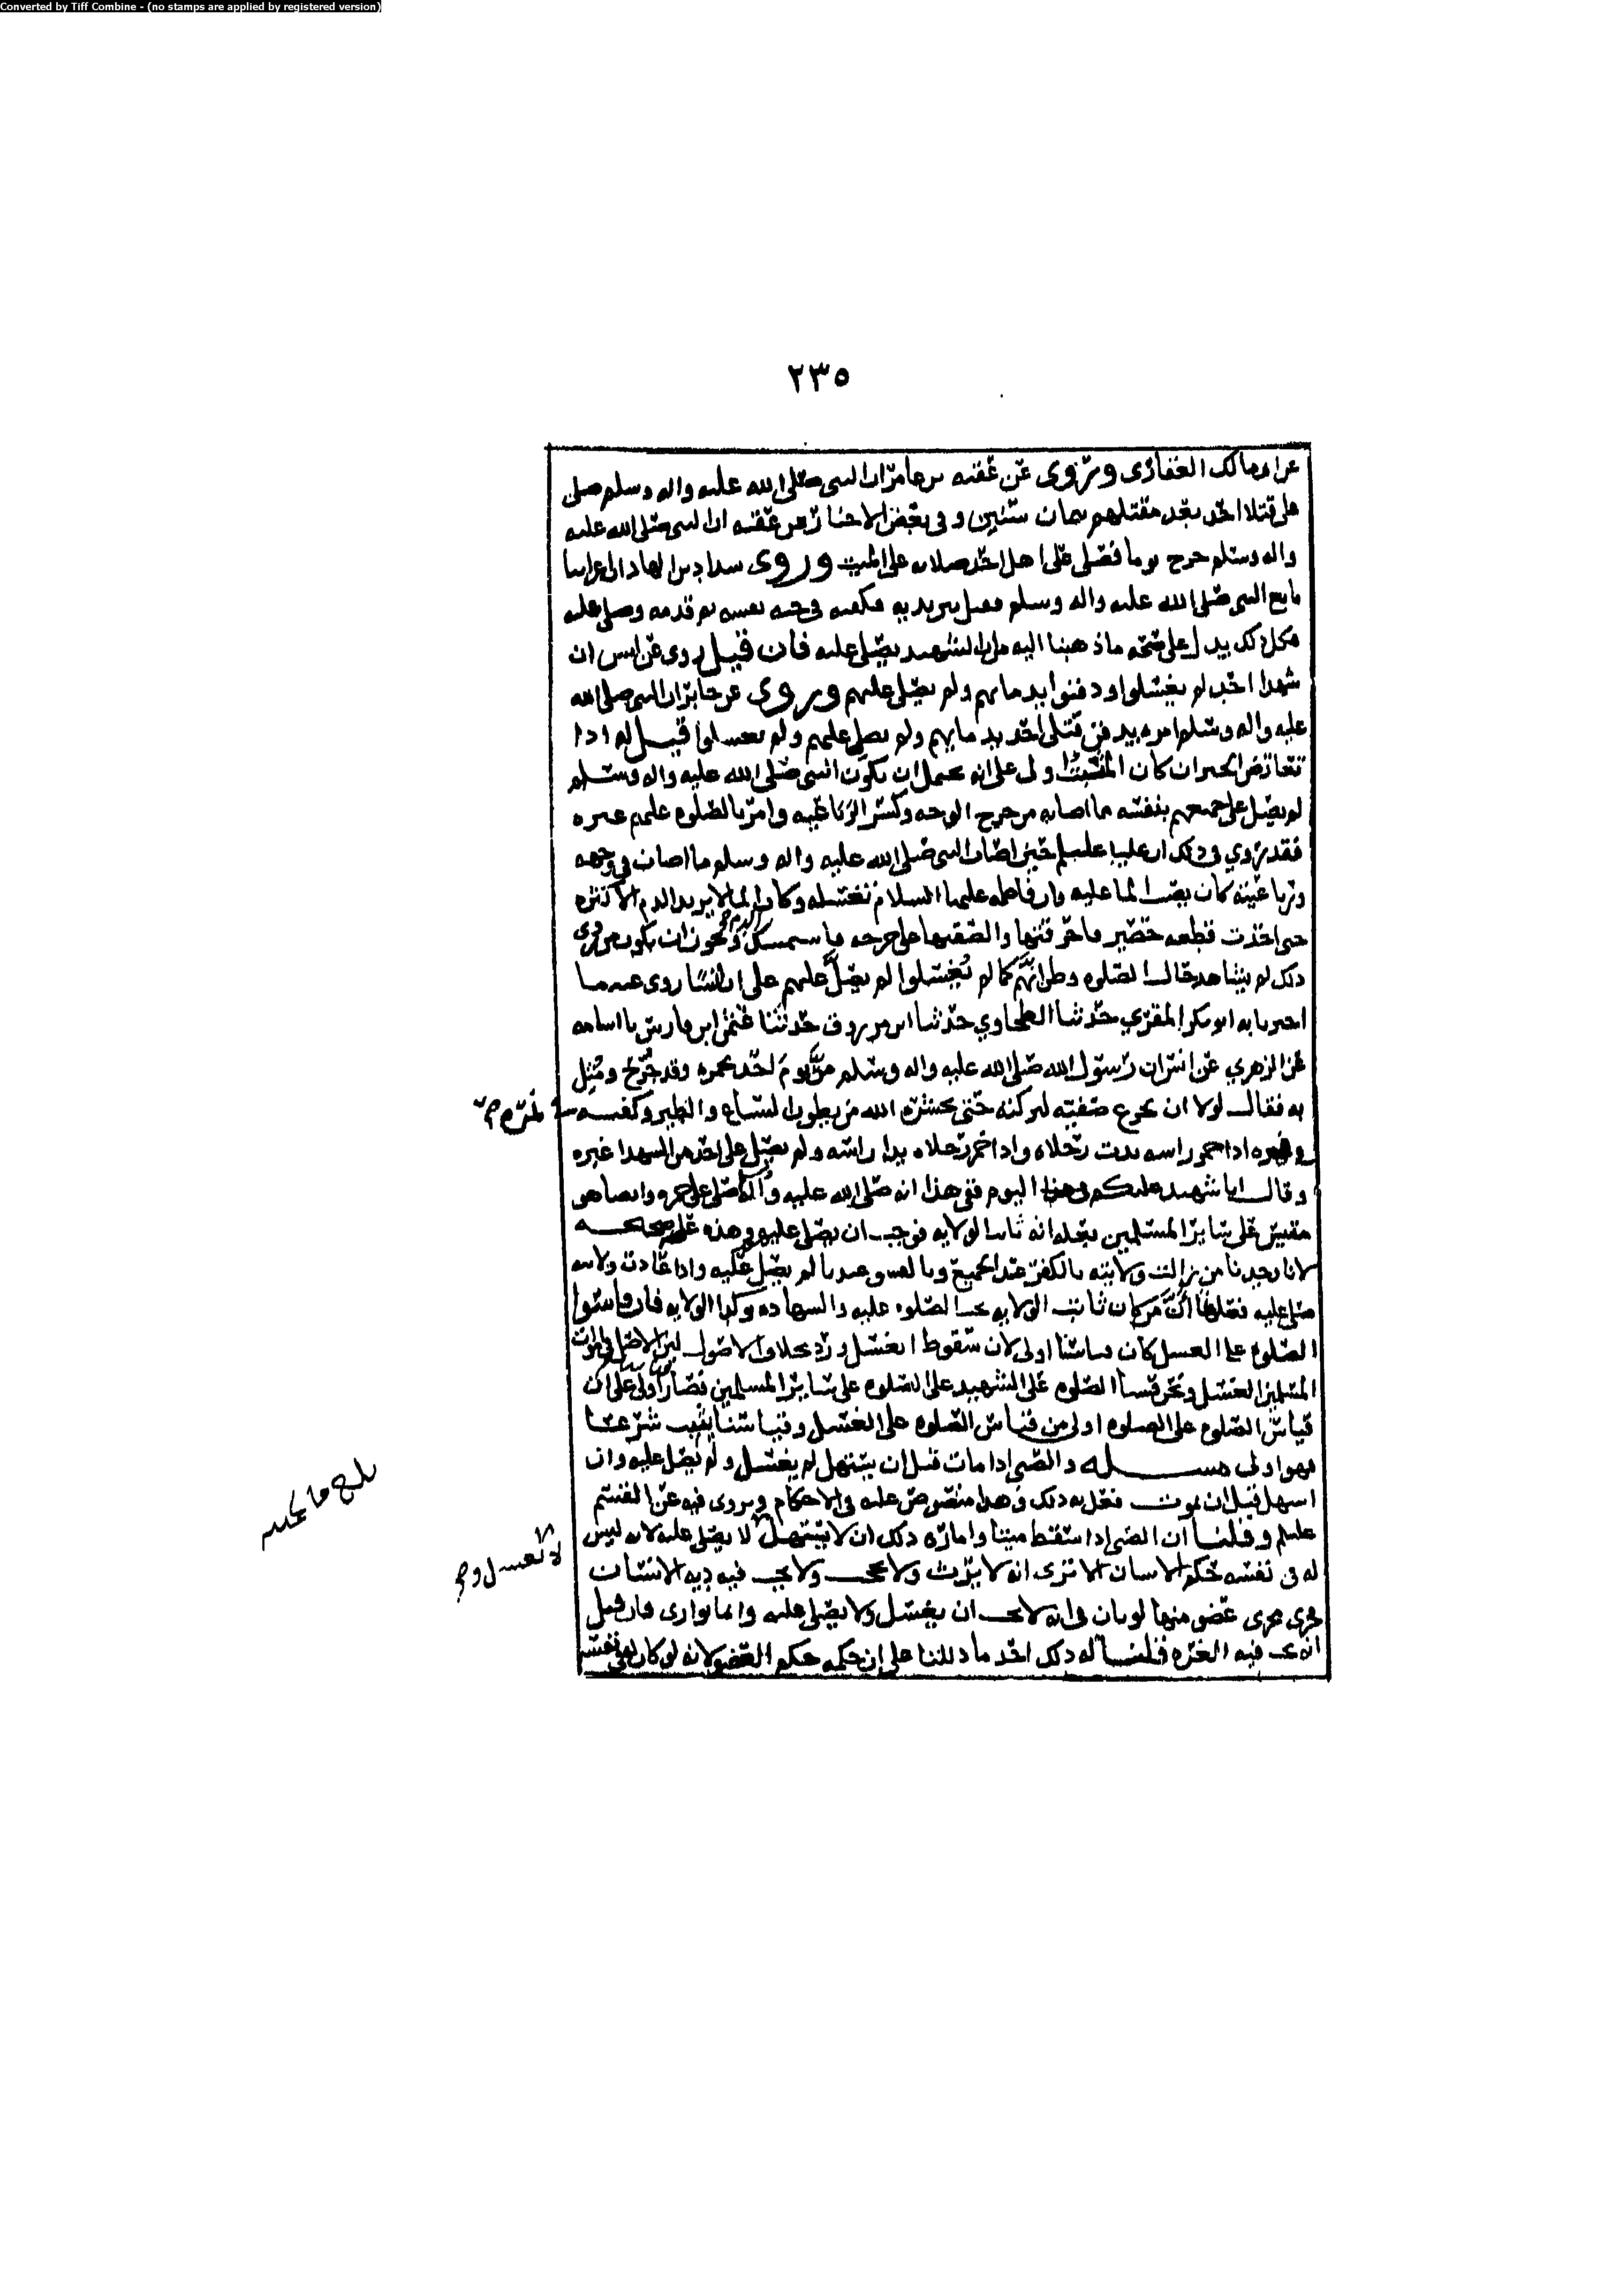 Converted by Tiff Combine - (no stamps are applied by registered version)
٢٣٥
عن ابي مالك الغفاري وتروى عن عقبه بن عامر ان النبي صلى الله عليه واله وسلم صلى
على قتلا احد بعد مقتلهم بثمان سنين وفي بعض الاخبار عن عقبه ان النبي صلى الله عليه
واله وسلم خرج يوما فصلى على اهل احد صلاته على الميت وروى شداد بن الهاد ان اعرابيا
بايع النبي صلى الله عليه واله وسلم فقتل بين يديه فكفنه في جبه نفسه ثم قدمه وصلى عليه
فكل ذلك يدل على صحه ما ذهبنا اليه من ان الشهيد يصلى عليه فان قيل روى عن انس ان
شهدا احد لم يغسلوا ودفنوا بدمائهم ولم يصلى عليهم وروى عن جابر ان النبي صلى الله
عليه واله وسلم امر بدفن قتلى احد بدمائهم ولم يصل عليهم ولم يغسلوا قيل له اذا
تعارض الخبران كان المثبت اولى على انه يحتمل ان يكون النبي صلى الله عليه واله وسلم
لم يصل على جميعهم بنفسه لما اصابه من جرح الوجه وكسر الرباعيه وامر بالصلوه عليهم غيره
فقد روي في ذلك ان عليا عليلم حين اصاب النبي صلى الله عليه واله وسلم ما اصاب في وجهه
ورباعيته كان يصب الما عليه وان فاطمه عليها السلام تغسله وكان الما لا يزيد الدم الا كثره
حتى اخذت قطعه حصير فاحرقتها والصقتها على جرحه فاستمسك الدم ونجوز ان يكون من روى
ذلك لم يشاهد حال الصلوه وظن انهم كما لم يغسلوا لم يصل عليهم على ان انسا روى عنه ما
اخبرنا به ابو بكر المقري حدثنا الطحاوي حدثنا ابن مرزوق حدثنا عثمن ابن فارس نا اسامه
عن الزهري عن انس ان رسول الله صلى الله عليه واله وسلم مر يوم احد بحمزه وقد جدع ومثل
به فقال لولا ان تجزع صفيه لتركته حتى يحشره الله من بطون السباع والطير وكفنه
اذا خمر راسه بدت رجلاه واذا خمر رجلاه بدا راسه ولم يصل على احد من الشهدا غيره
وقال انا شهيد عليكم اليوم ففي هذا انه صلى الله عليه واله صلى على حمزه وايضا هو
مقيس على سائر المسلمين بعله انه ثابت الولايه فوجب ان يصلى عليه وهذه عله صحيحه
لانا وجدنا من زالت ولايته بالكفر عند الجميع وبالفسق عندنا لم يصل عليه واذا عادت ولايته
صلي عليه فعلمنا ان من كان ثابت الولايه يجب الصلوه عليه والشهاده توكد الولايه فان قاسوا
الصلوه على الغسل كان قياسنا اولى لان سقوط الغسل ورد بخلاف الاصول لان الاصل في اموات
المسلمين الغسل ونحن قسنا الصلوه على الشهيد على الصلوه على سائر المسلمين فصار اولى على ان
قياس الصلوه على الصلوه اولى من قياس الصلوه على الغسل وقياسنا يثبت شرعا
فهو اولى مسله والصبي اذا مات قبل ان يستهل لم يغسل ولم يصل عليه وان
استهل قبل ان يموت فعل به ذلك وهذا منصوص عليه في الاحكام وروى فيه عن القسم
عليلم وقلنا ان الصبي اذا سقط ميتا وامارة ذلك ان لا يستهل لا يصلى عليه لانه ليس
له في نفسه حكم الانسان الا ترى انه لا يرث ولا يحجب ولا يجب فيه ديه الانسان
فجرى مجرى عضو منها لو بان في انه لا يجب ان يغسل ولا يصلى عليه وانما يوارى فان قيل
انه يجب فيه الغره قلنا له ذلك احد ما دللنا على ان حكمه حكم العضو لانه لو كان له في نفسه
لا يغسل و
بلغ مقابله